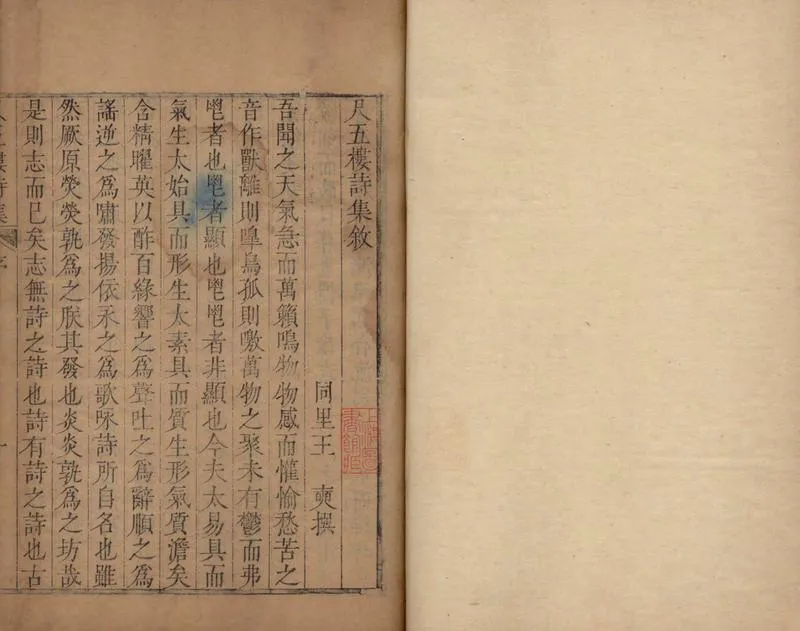 尺五樓詩集敘
同里王 奭撰
吾聞之天氣急而萬籟鳴物物感而懽愉愁苦之
音作獸離則嘷鳥孤則噭萬物之聚未有鬱而弗
鬯者也鬯者顯也鬯鬯者非顯也今夫太易具而
氣生太始具而形生太素具而質生形氣質澹矣
含精曜英以酢百緣響之爲聲吐之爲辭順之爲
謠逆之爲嘯發揚依永之爲歌咏詩所自名也雖
然厥原熒熒孰爲之朕其發也炎炎孰爲之坊哉
是則志而已矣志無詩之詩也詩有詩之詩也古
五樓詩集 序 一